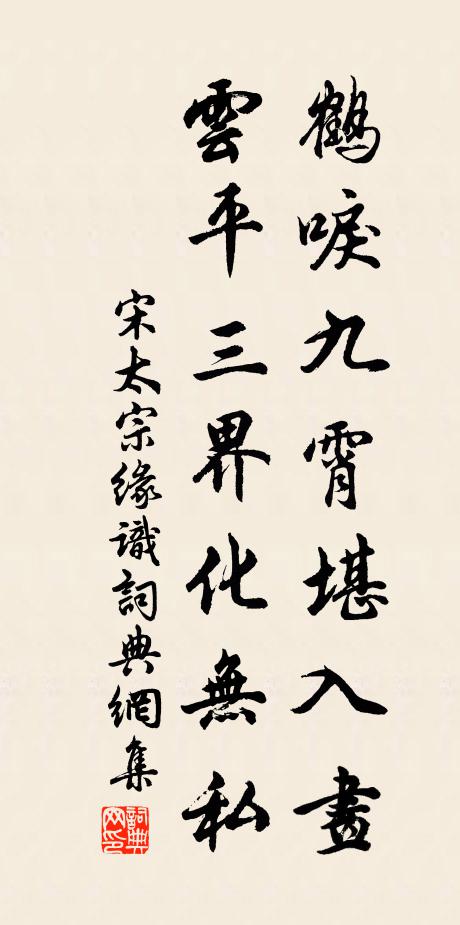 鶴唳九霄堪入畫
雲平三界化無私
宋太宗緣識詞典網集
詞典網印